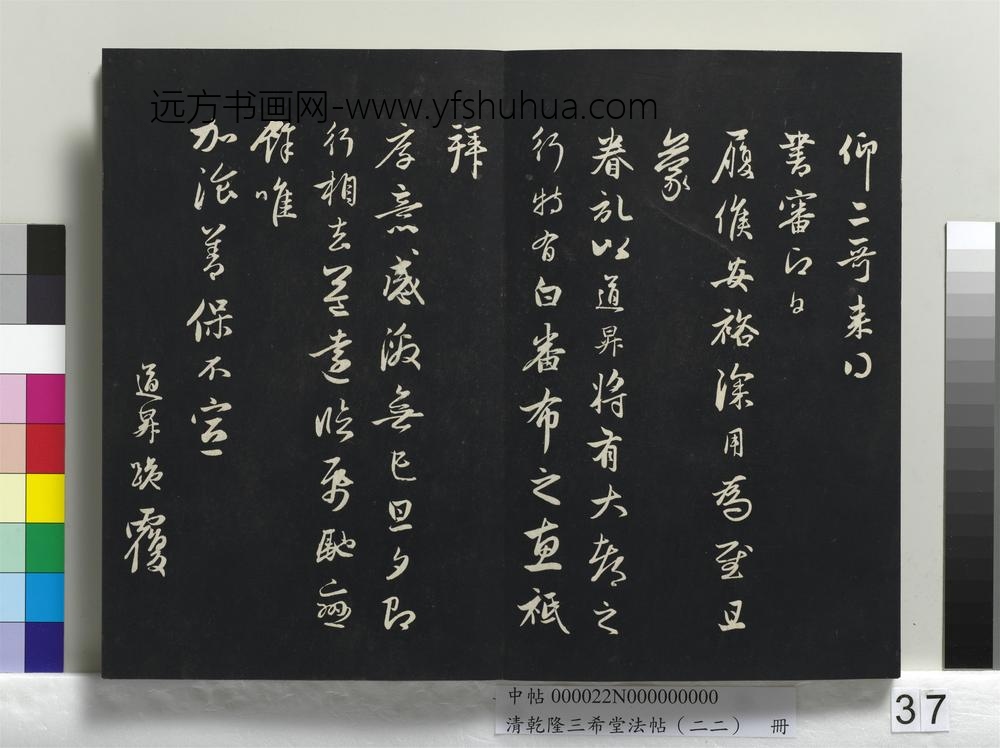 仰二哥来日
書審即日
履候安裕深用為慰且
蒙
眷私以道昇將有大都之
行特有白番布之惠祗
拜
厚意感激無已旦夕即
行相去益遠臨風馳
餘唯
加湌善保不宣
道昇跪覆
远方书画网-www.yfshuhua.com
中帖 000022N000000000
清乾隆三希堂法帖（二二） 冊
37